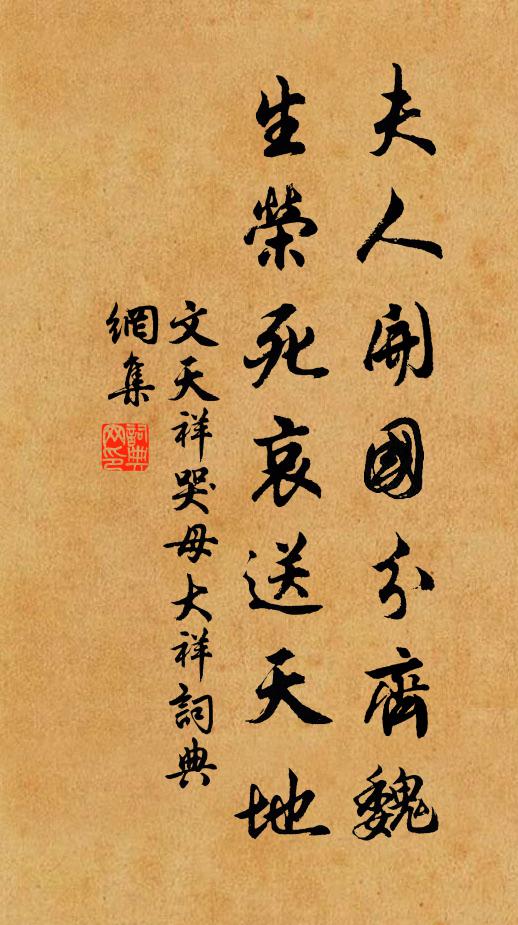 夫人開國分齊魏
生榮死哀送天地
文天祥哭母大祥詞典
網集
詞典
网印